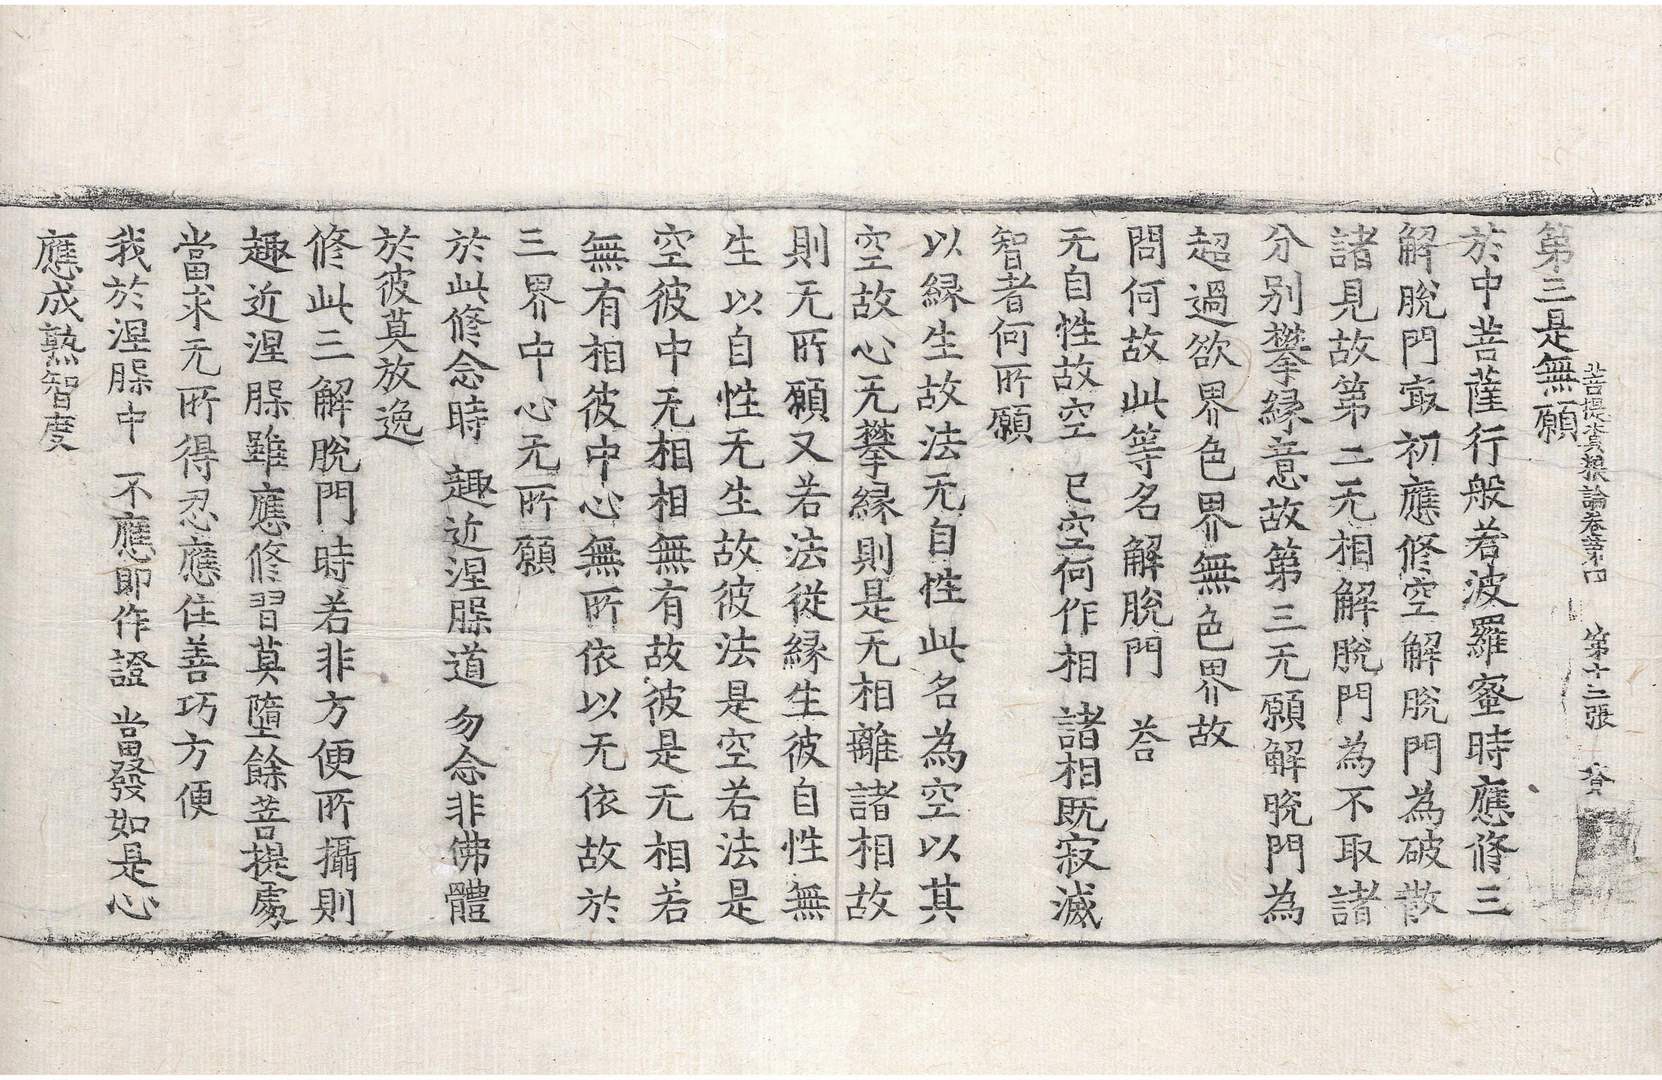 菩提資粮論卷第四 第十二張 㕘
第三是無願
於中菩薩行般若波羅蜜時應修三
解脫門㝡初應修空解脫門為破散
諸見故第二无相解脫門為不取諸
分別攀緣意故第三无願解脫門為
超過欲界色界無色界故
問何故此等名解脫門 荅
无自性故空 已空何作相 諸相既寂滅
智者何所願
以緣生故法无自性此名為空以其
空故心无攀緣則是无相離諸相故
則无所願又若法從緣生彼自性無
生以自性无生故彼法是空若法是
空彼中无相相無有故彼是无相若
無有相彼中心無所依以无依故於
三界中心无所願
於此修念時 趣近涅槃道 勿念非佛體
於彼莫放逸
修此三解脫門時若非方便所攝則
趣近涅槃雖應修習莫墮餘菩提處
當求无所得忍應住善巧方便
我於涅槃中 不應即作證 當發如是心
應成熟智度